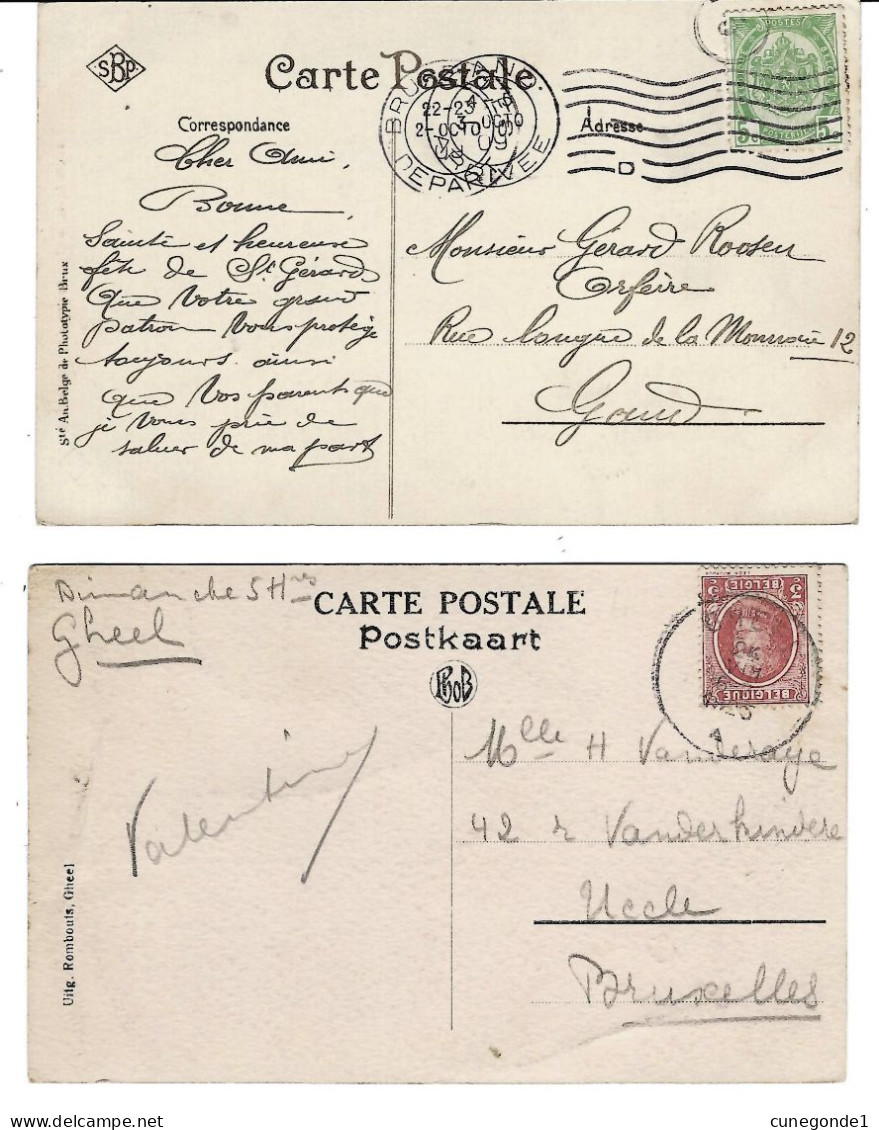 SBP
Carte Postale
Correspondance
Adresse
22-23
2-OCTO
OCTO
09
DEPAR
D
POSTES
5c 5c
Cher Ami,
Bonne
Sainte et heureuse
fête de St Gérard
Que Votre grand
patron Vous protège
toujours ainsi
que Vos parents que
je Vous prie de
saluer de ma part
Monsieur Gérard Roosen
Orfèvre
Rue longue de la Monnaie 12
Gand
Sté An. Belge de Phototypie Brux
Dimanche 5 Hrs
Gheel
CARTE POSTALE
Postkaart
PhoB
BELGIE
BELGIQUE
1
Valentine
Mlle H Vanderaye
42 r Vanderkindere
Uccle
Bruxelles
Uitg. Rombouts, Gheel
cunegonde1